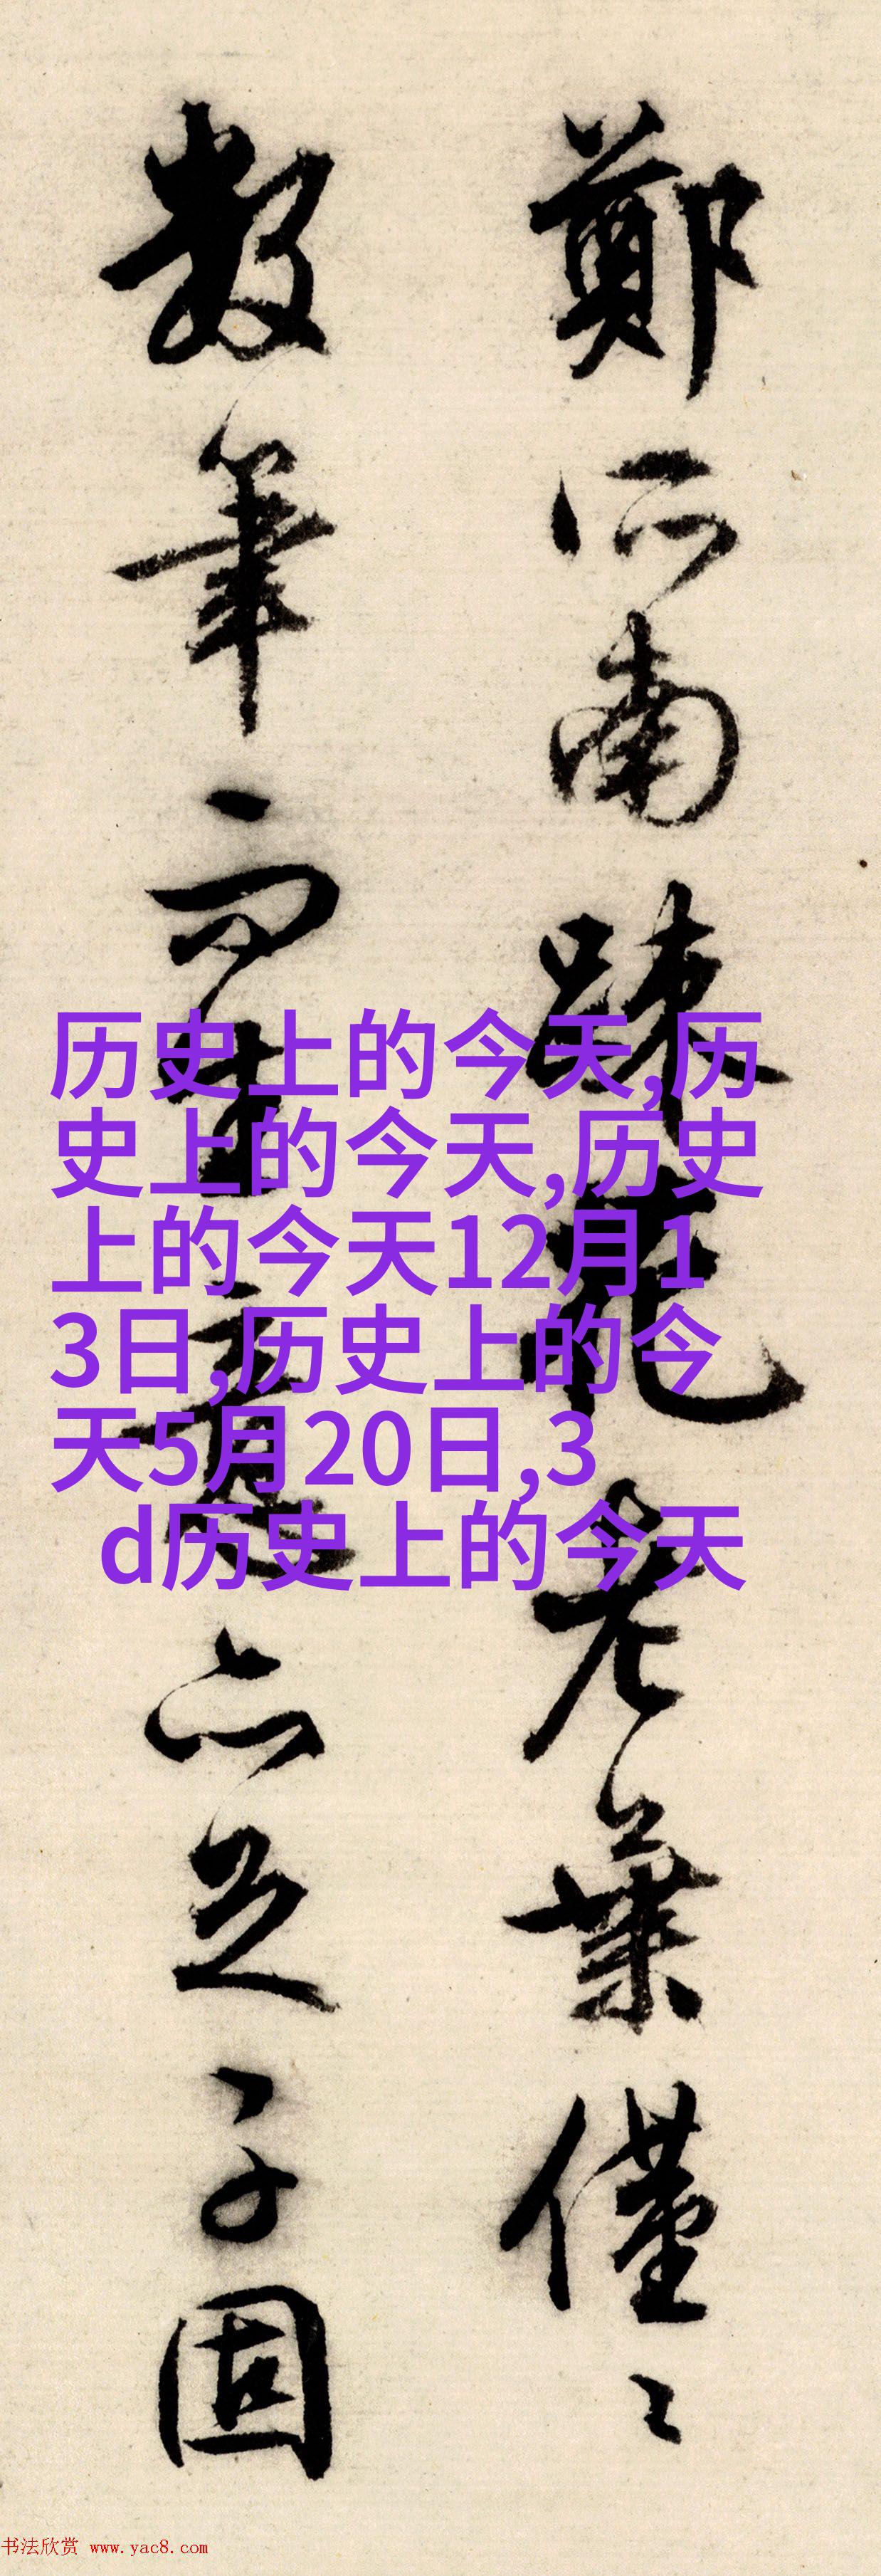 鄭所南疎花老葉僅〻
數筆而生意亦足子固
历史上的今天,历
史上的今天,历史
上的今天12月1
3日,历史上的今
天5月20日,3
d历史上的今天
书法欣赏 www.yac8.com